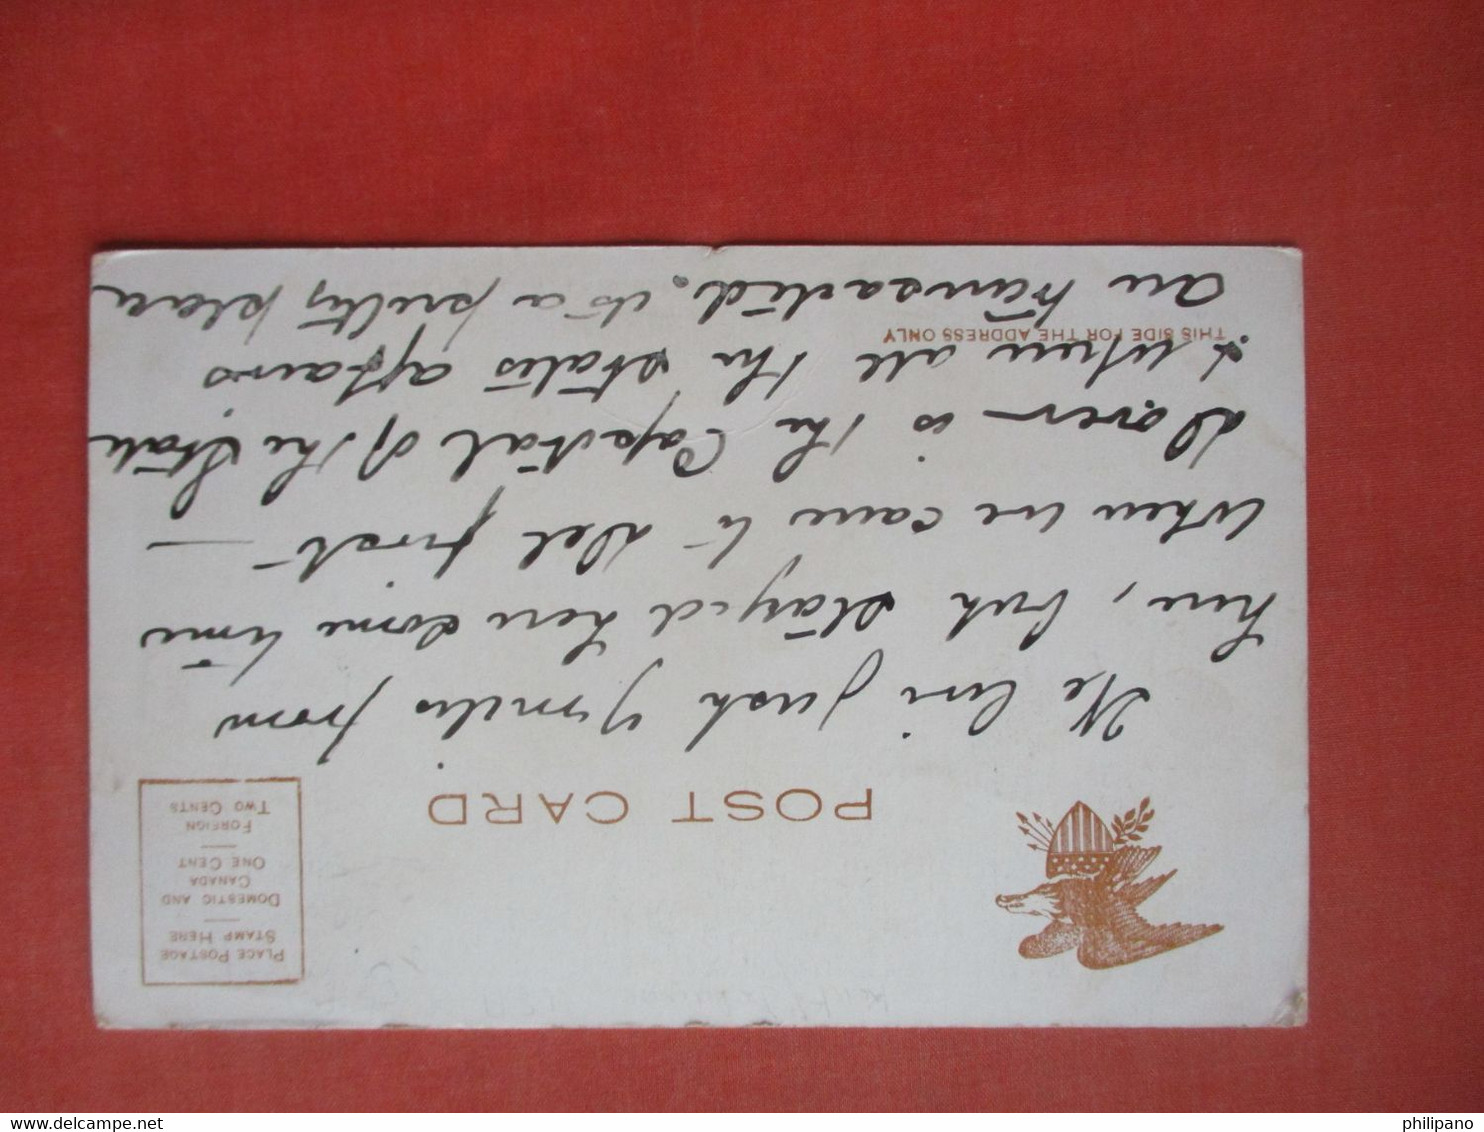 PLACE POSTAGE
STAMP HERE
DOMESTIC AND
CANADA
ONE CENT
FOREIGN
TWO CENTS
POST CARD
We live just 7 miles from
here, but stayed here some time
when we came to Del first —
Dover is the Capital of the State
& when all the states affairs
THIS SIDE FOR THE ADDRESS ONLY
are transacted. its a pretty place
www.delcampe.net
philipano